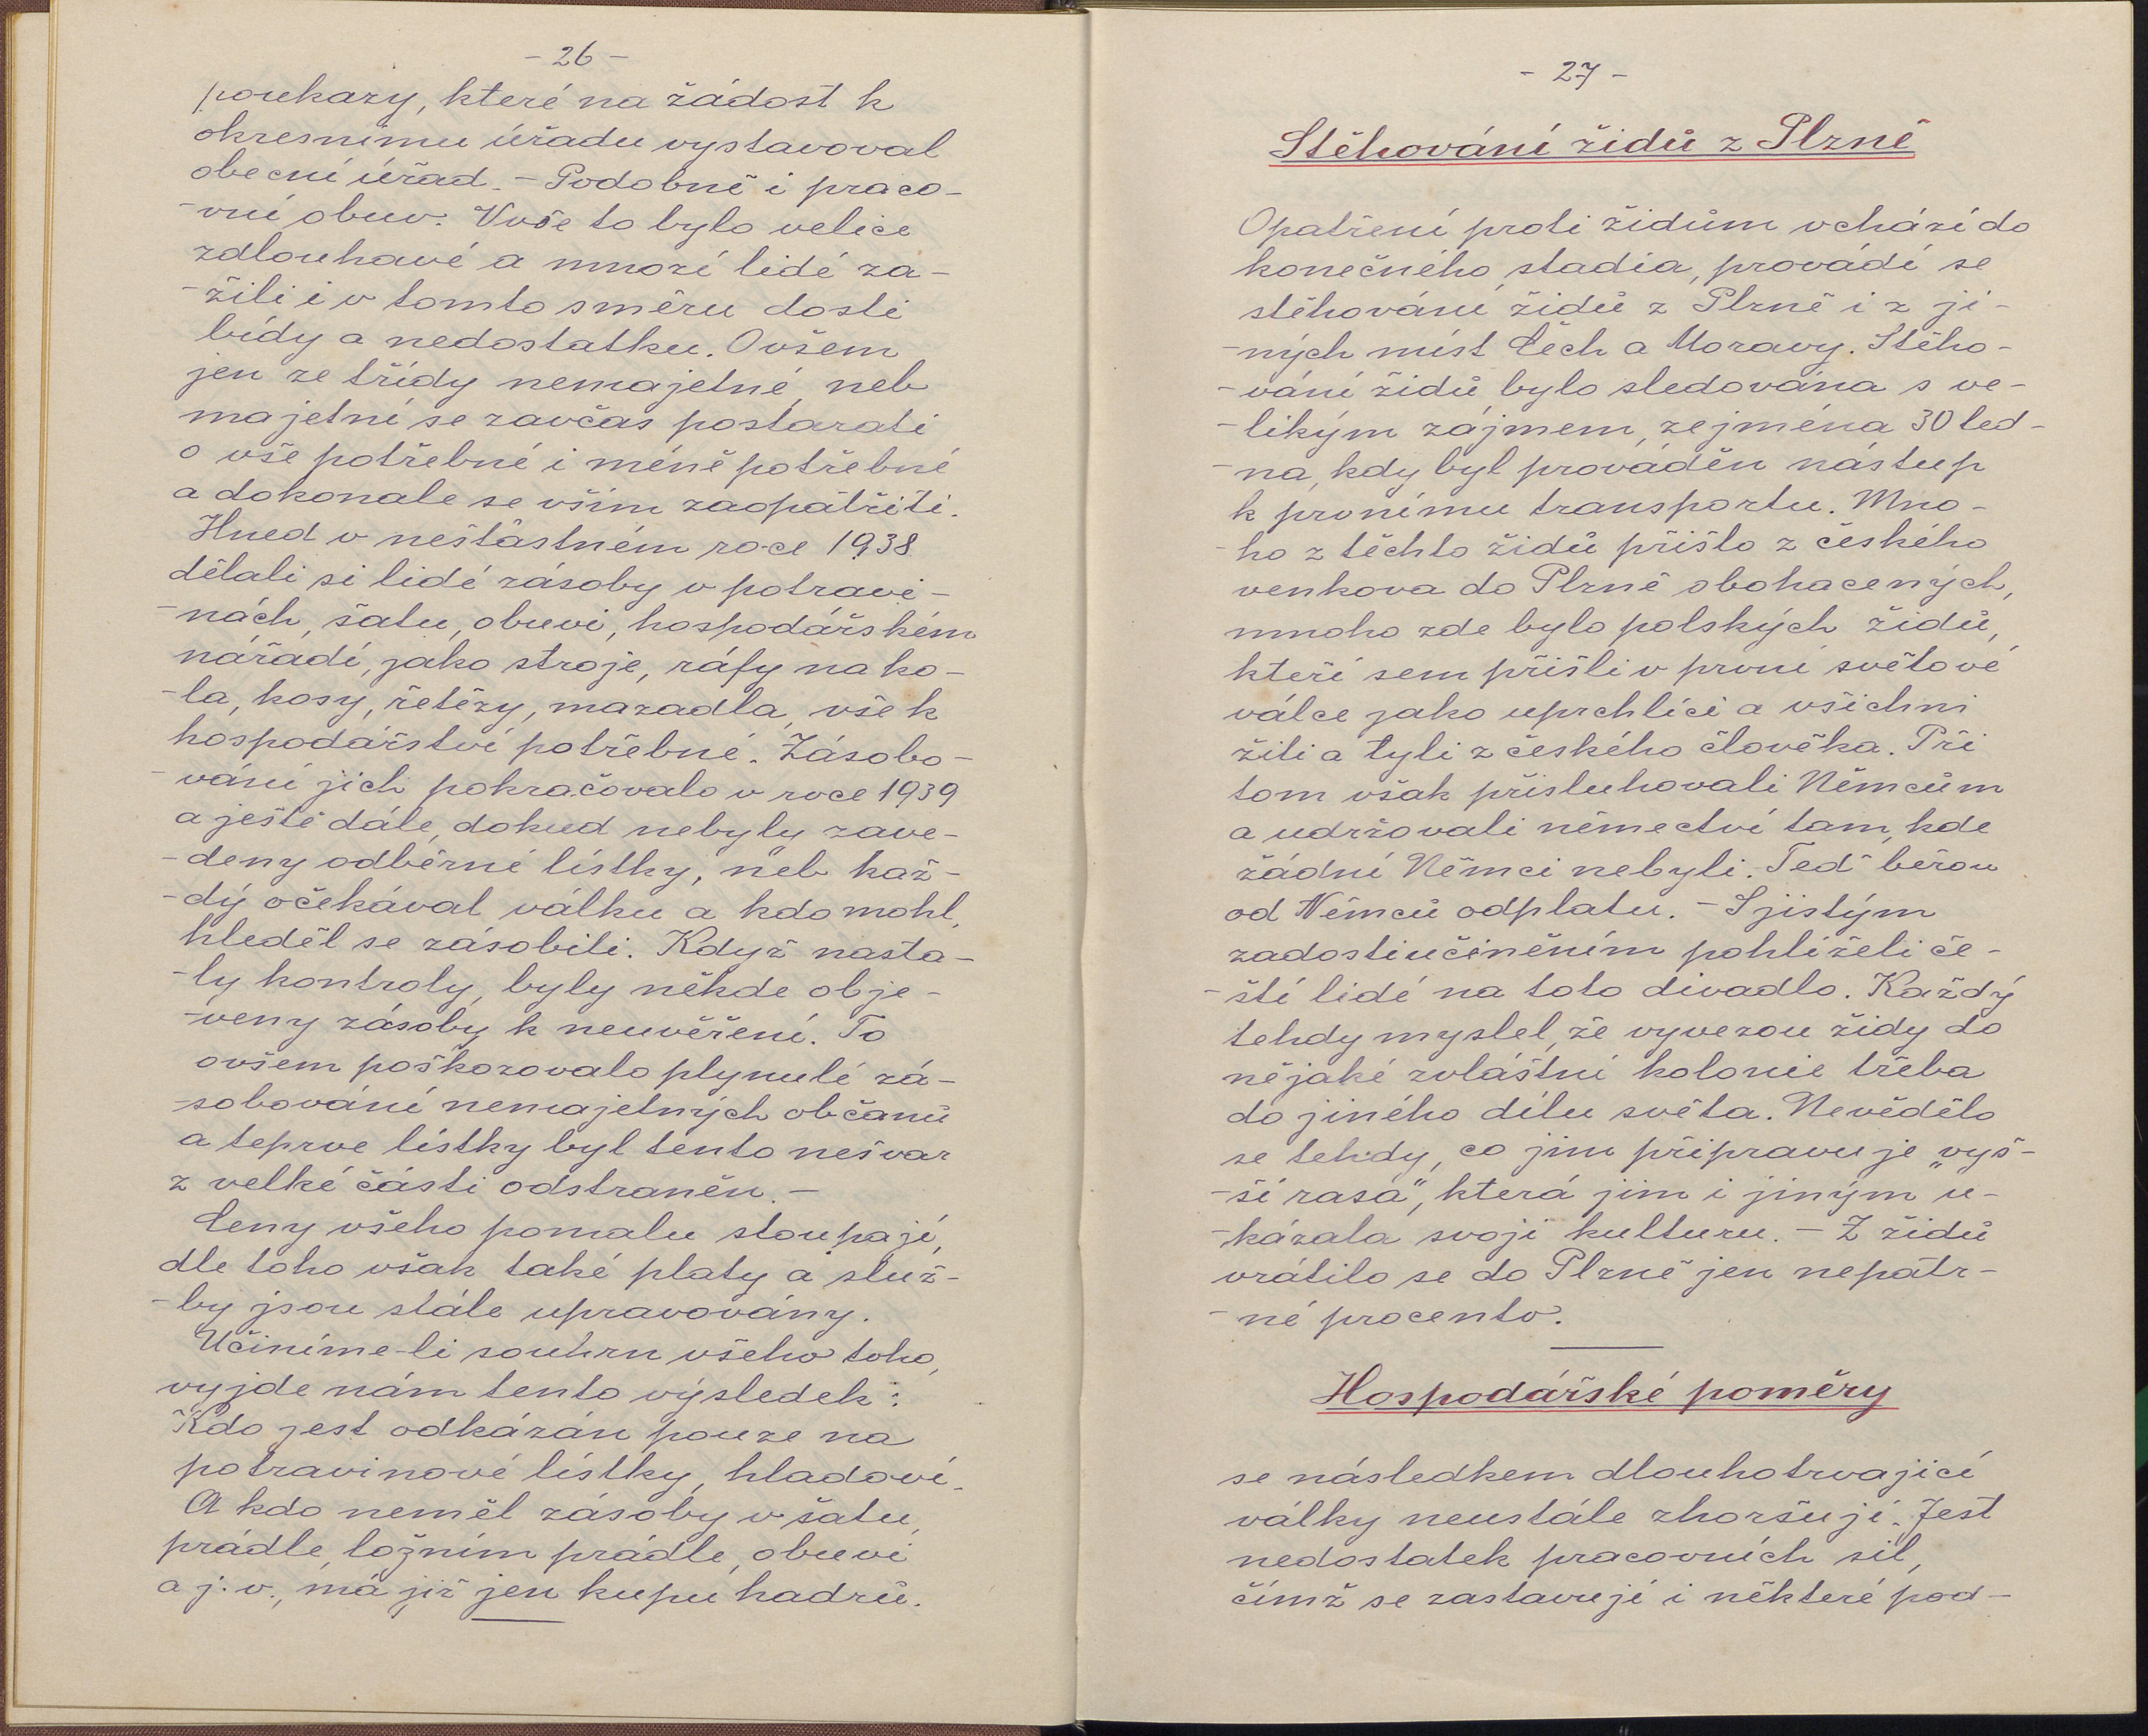 - 26 -
poukazy, které na žádost k
okresnímu úřadu vystavoval
obecní úřad. - Podobně i praco-
-vní obuv. Vše to bylo velice
zdlouhavé a mnozí lidé za-
-žili i v tomto směru dosti
bídy a nedostatku. Ovšem
jen ze třídy nemajetné, neb
majetní se zavčas postarati
o vše potřebné i méně potřebné
a dokonale se vším zaopatřiti.
Hned v nešťastném roce 1938
dělali si lidé zásoby v potravi-
-nách, šatu, obuvi, hospodářském
nářadí, jako stroje, ráfy na ko-
-la, kosy, řetězy, mazadla, vše k
hospodářství potřebné. Zásobo-
-vání jich pokračovalo v roce 1939
a ještě dále, dokud nebyly zave-
-deny odběrné lístky, neb kaž-
-dý očekával válku a kdo mohl,
hleděl se zásobiti. Když nasta-
-ly kontroly, byly někde obje-
-veny zásoby k neuvěření. To
ovšem poškozovalo plynulé zá-
-sobování nemajetných občanů
a teprve lístky byl tento nešvar
z velké části odstraněn. -
Ceny všeho pomalu stoupají,
dle toho však také platy a služ-
-by jsou stále upravovány.
Učiníme-li souhrn všeho toho,
vyjde nám tento výsledek:
Kdo jest odkázán pouze na
potravinové lístky, hladoví.
A kdo neměl zásoby v šatu,
prádle, ložním prádle, obuvi
a j. v., má již jen kupu hadrů.
- 27 -
Stěhování židů z Plzně
Opatření proti židům vchází do
konečného stadia, provádí se
stěhování židů z Plzně i z ji-
-ných míst Čech a Moravy. Stěho-
-vání židů bylo sledována s ve-
-likým zájmem, zejména 30 led-
-na, kdy byl prováděn nástup
k prvnímu transportu. Mno-
-ho z těchto židů přišlo z českého
venkova do Plzně obohacených,
mnoho zde bylo polských židů,
kteří sem přišli v první světové
válce jako uprchlíci a všichni
žili a tyli z českého člověka. Při
tom však přisluhovali Němcům
a udržovali němectví tam, kde
žádní Němci nebyli. Teď berou
od Němců odplatu. - S jistým
zadostiučiněním pohlíželi če-
-ští lidé na toto divadlo. Každý
tehdy myslel, že vyvezou židy do
nějaké zvláštní kolonie třeba
do jiného dílu světa. Nevědělo
se tehdy, co jim připravuje „vyš-
-ší rasa“, která jim i jiným u-
-kázala svoji kulturu. - Z židů
vrátilo se do Plzně jen nepatr-
-né procento.
Hospodářské poměry
se následkem dlouhotrvající
války neustále zhoršují. Jest
nedostatek pracovních sil,
čímž se zastavují i některé pod-